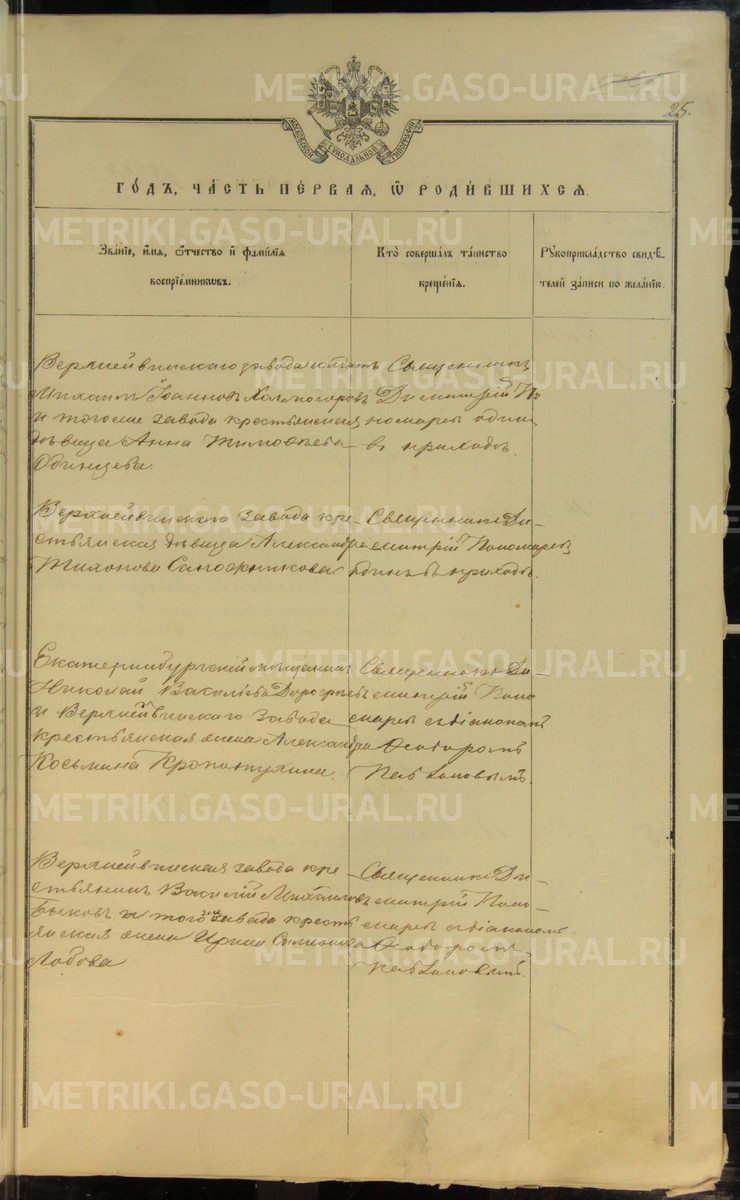 25.
МОСКОВСКОЙ СѴНОДАЛЬНОЙ ТИПОГРАФІИ
ГО́ДЪ, ЧА́СТЬ ПЕ́РВАѦ, Ѡ҆ РОДИ́ВШИХСѦ.
Зва́нїе, и́мѧ, ѻ҆́тчество и҆ фамі́лїѧ
воспрїе́мникѡвъ.
Кто̀ соверша́лъ та́инство
креще́нїѧ.
Рꙋкоприкла́дство свидѣ́-
телей за́писи по жела́нїю.
Верхнейвинскаго завода солдатъ
Михаилъ Іоанновъ Холмогоровъ
и тогоже завода крестьянская
дѣвица Анна Тимоѳѣева
Одинцева.
Священникъ
Димитрій По
номаревъ одинъ
въ приходѣ.
Верхнейвинскаго завода кре-
стьянская дѣвица Александра
Тихонова Сапожникова.
Священникъ Ди-
митрій Пономаревъ
одинъ въ приходѣ.
Екатеринбургскій мѣщанинъ
Николай Василіевъ
и Верхнейвинскаго завода
крестьянская жена Александра
Косьмина Кропотухина.
Священникъ Ди
митрій Поно
маревъ съ діакономъ
Ѳеодоромъ
Павлиновымъ.
Верхнейвинскаго завода кре-
стьянинъ Василій Михаиловъ
Быковъ и того же завода кресть
янская жена Ирина Симеонова
Лобова
Священникъ Ди-
митрій Поно
маревъ съ діакономъ
Ѳеодоромъ
Павлиновымъ.
METRIKI.GASO-URAL.RU